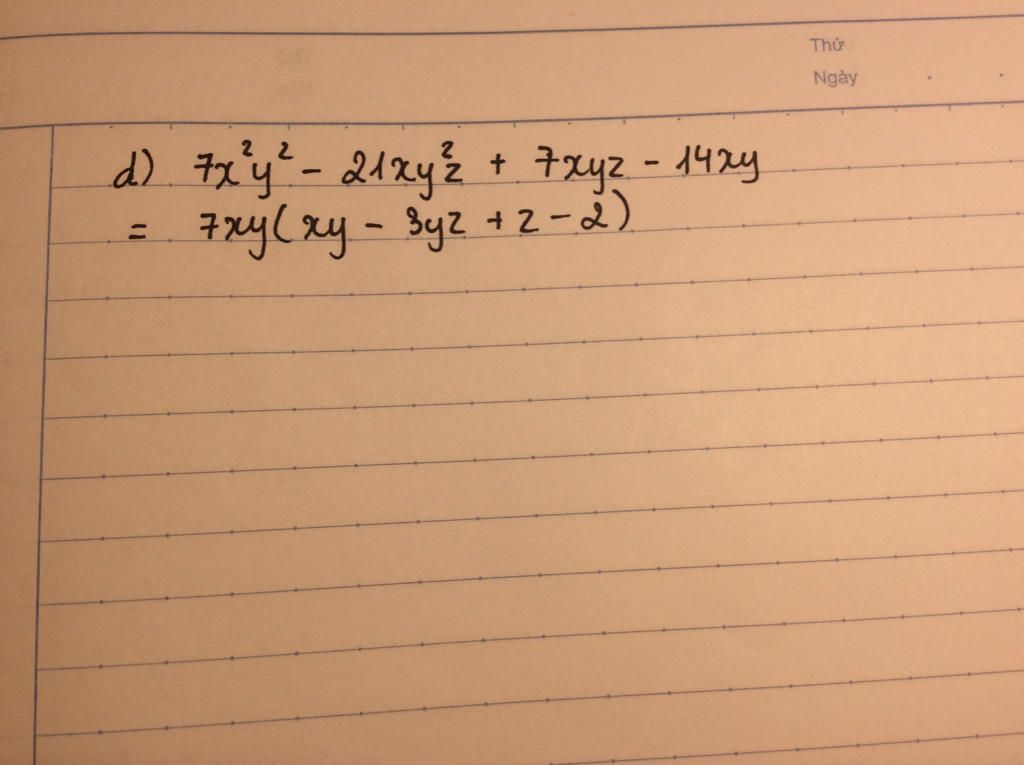 Thứ
Ngày
d) 7x²y² - 21xy²z + 7xyz - 14xy
= 7xy(xy - 3yz + z - 2)